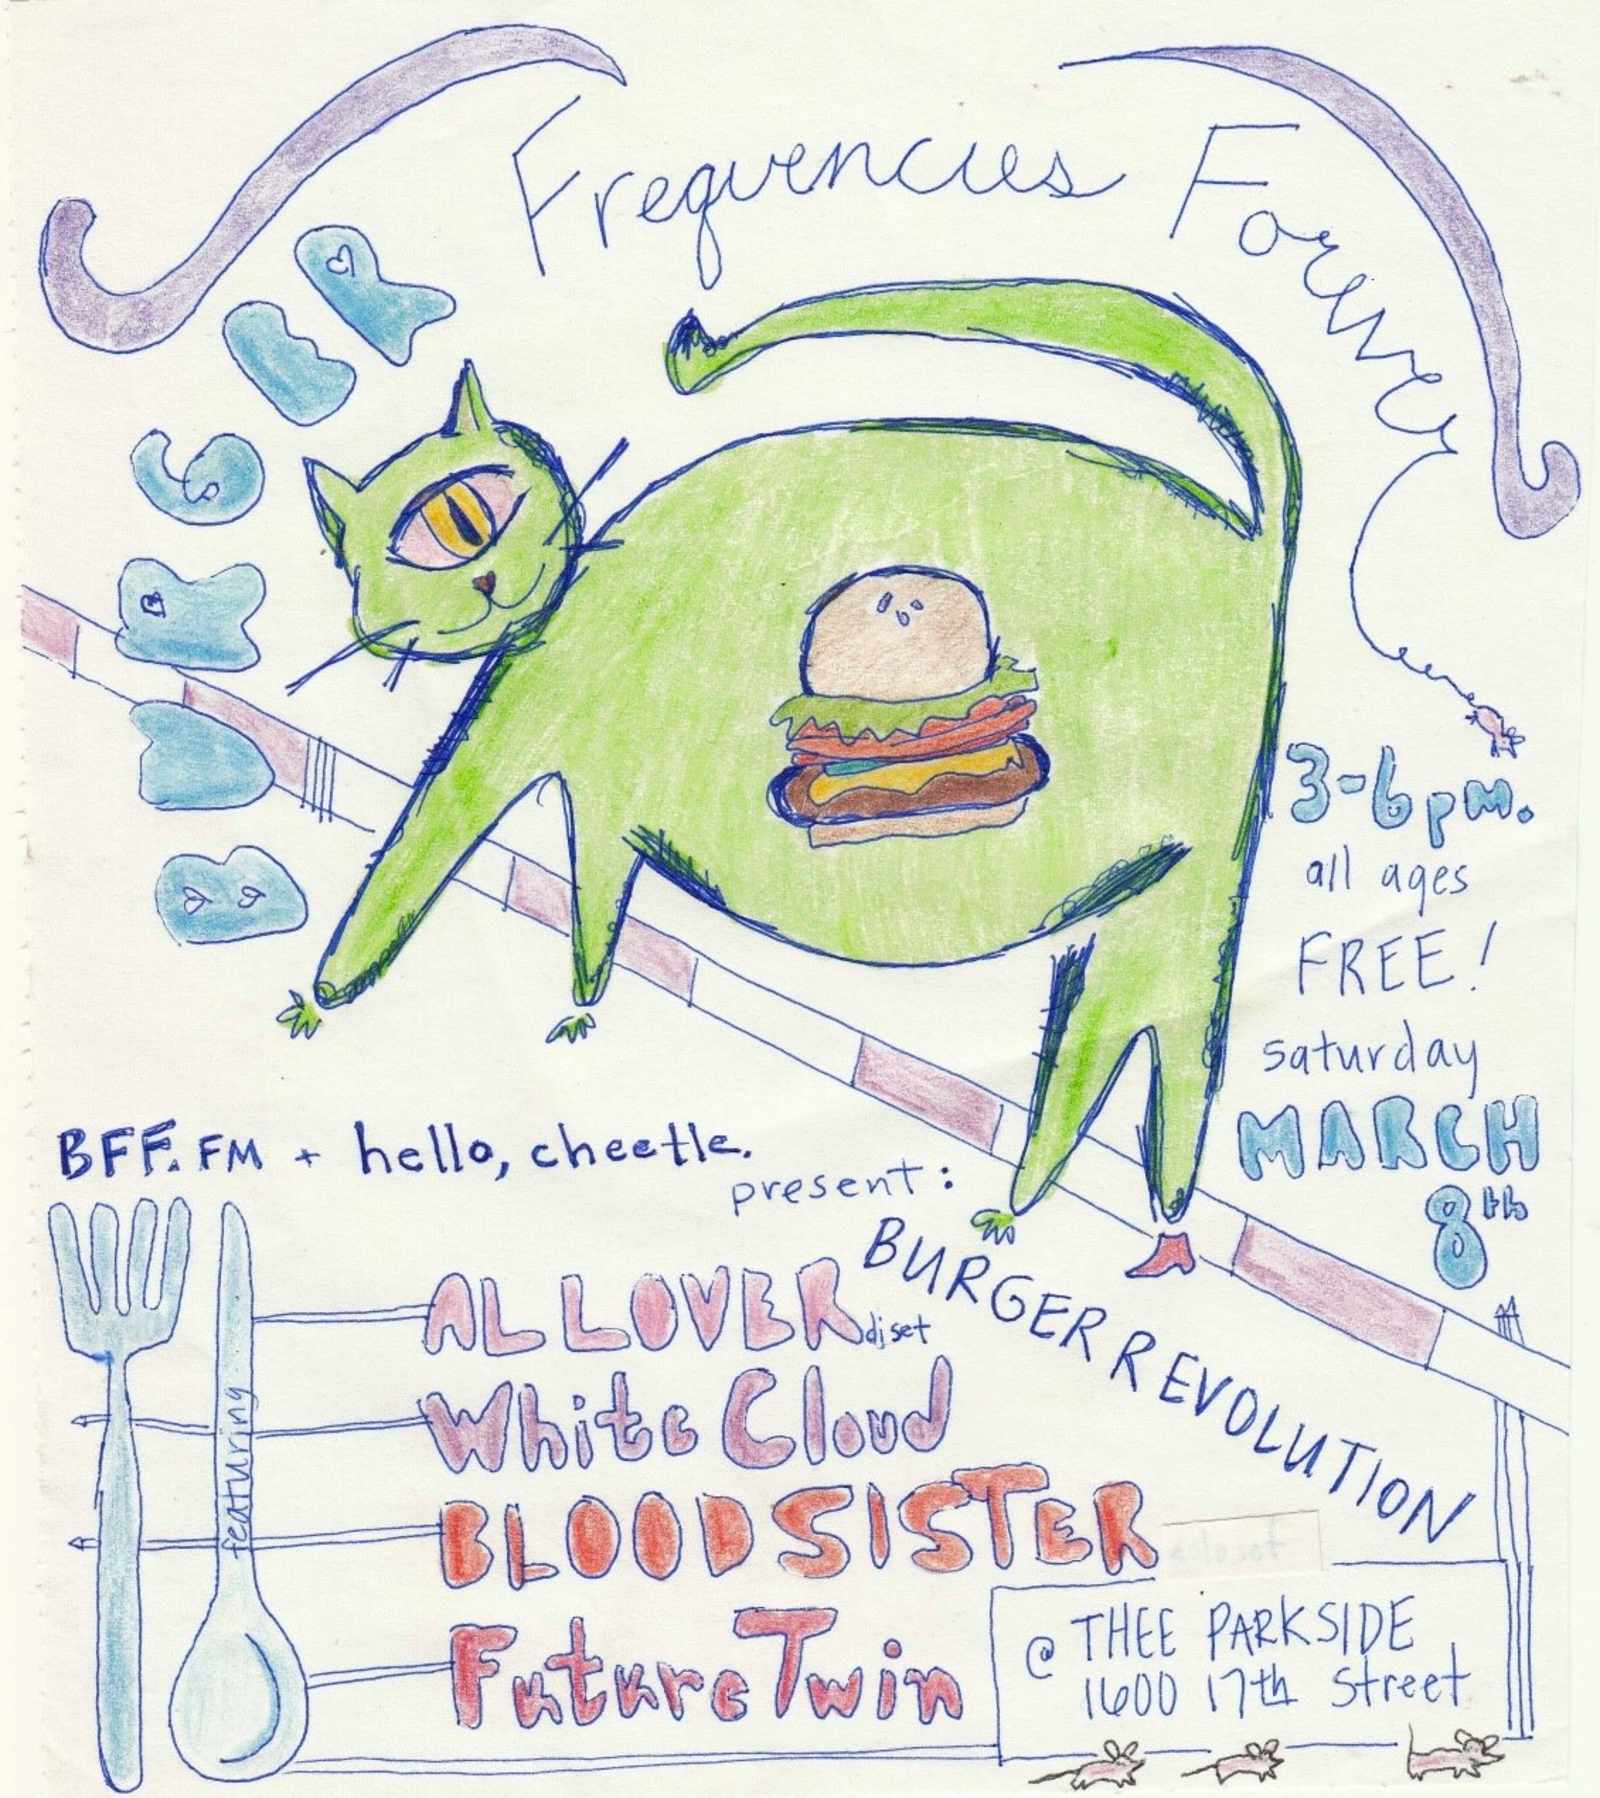 Frequencies Forever
BURGER
3-6pm.
all ages
FREE!
saturday
MARCH
8th
BFF.FM + hello, cheetle.
present:
BURGER REVOLUTION
featuring
AL LOVER dj set
White Cloud
BLOOD SISTER
Future Twin
@ THEE PARKSIDE
1600 17th Street